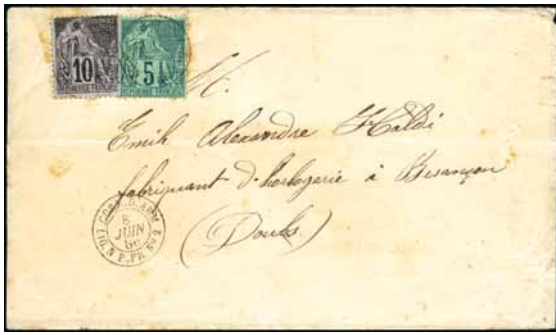 10 5
M.
Emile Alexandre Haldi
fabriquant d'horlogerie à Besançon
(Doubs)
CORR. D. ARM.
8
JUIN
86
LIG. N P. FR. Nº 2